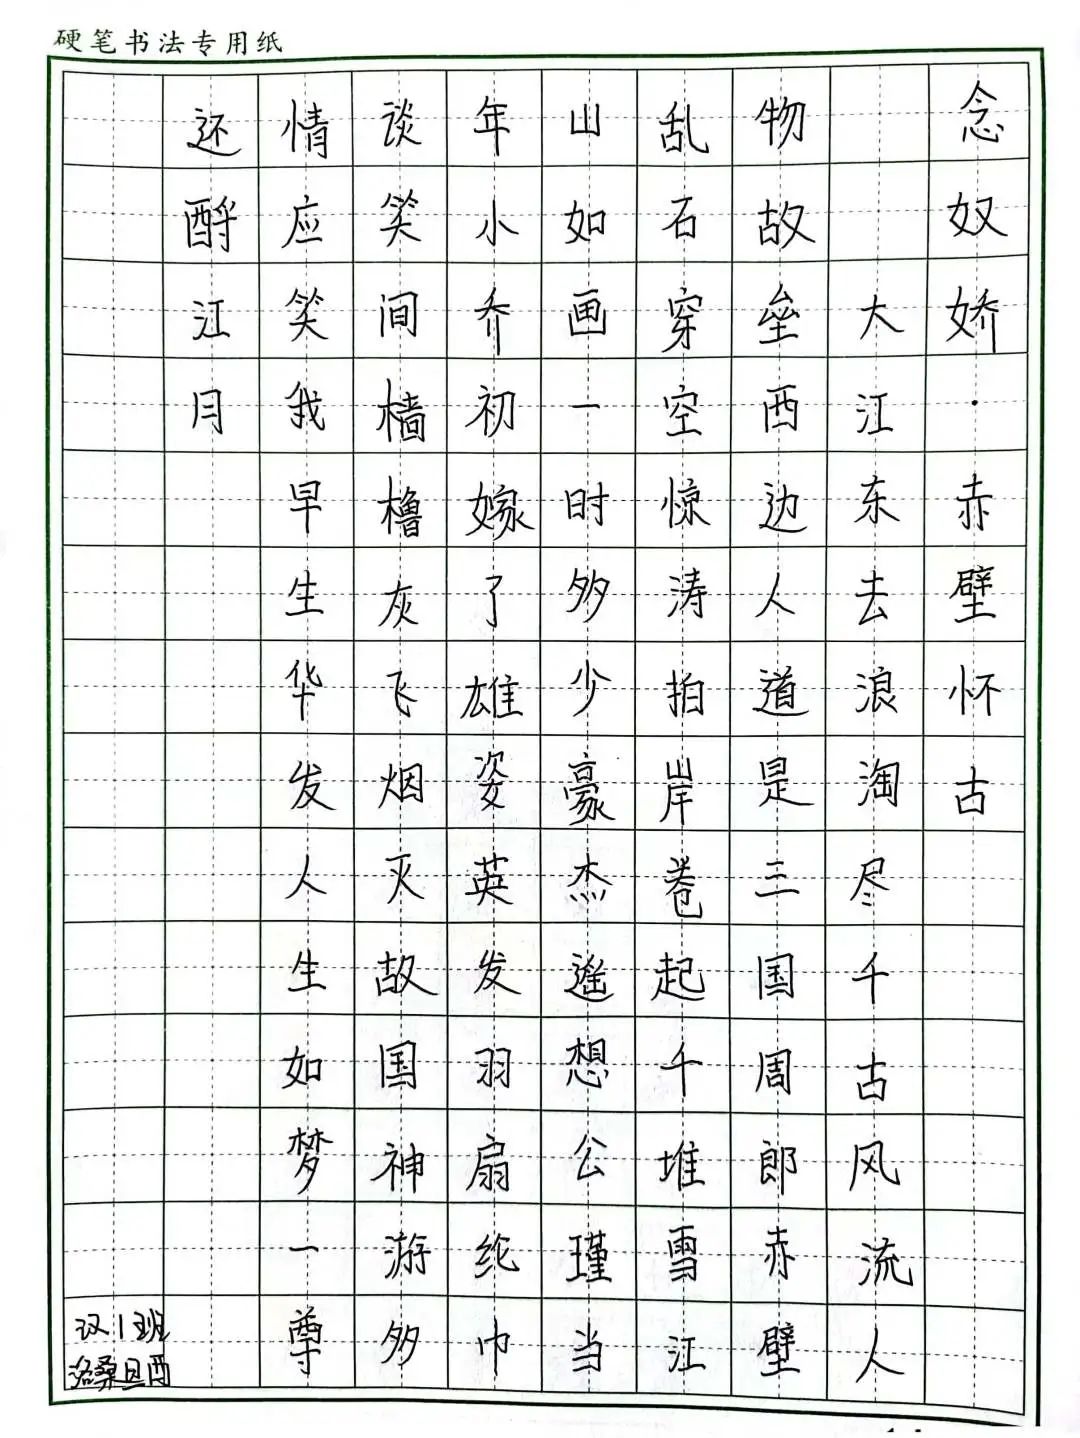 硬笔书法专用纸
念奴娇·赤壁怀古
大江东去浪淘尽千古风流人
物故垒西边人道是三国周郎赤壁
乱石穿空惊涛拍岸卷起千堆雪江
山如画一时多少豪杰遥想公瑾当
年小乔初嫁了雄姿英发羽扇纶巾
谈笑间樯橹灰飞烟灭故国神游多
情应笑我早生华发人生如梦一尊
还酹江月
汉1班
洛桑旦